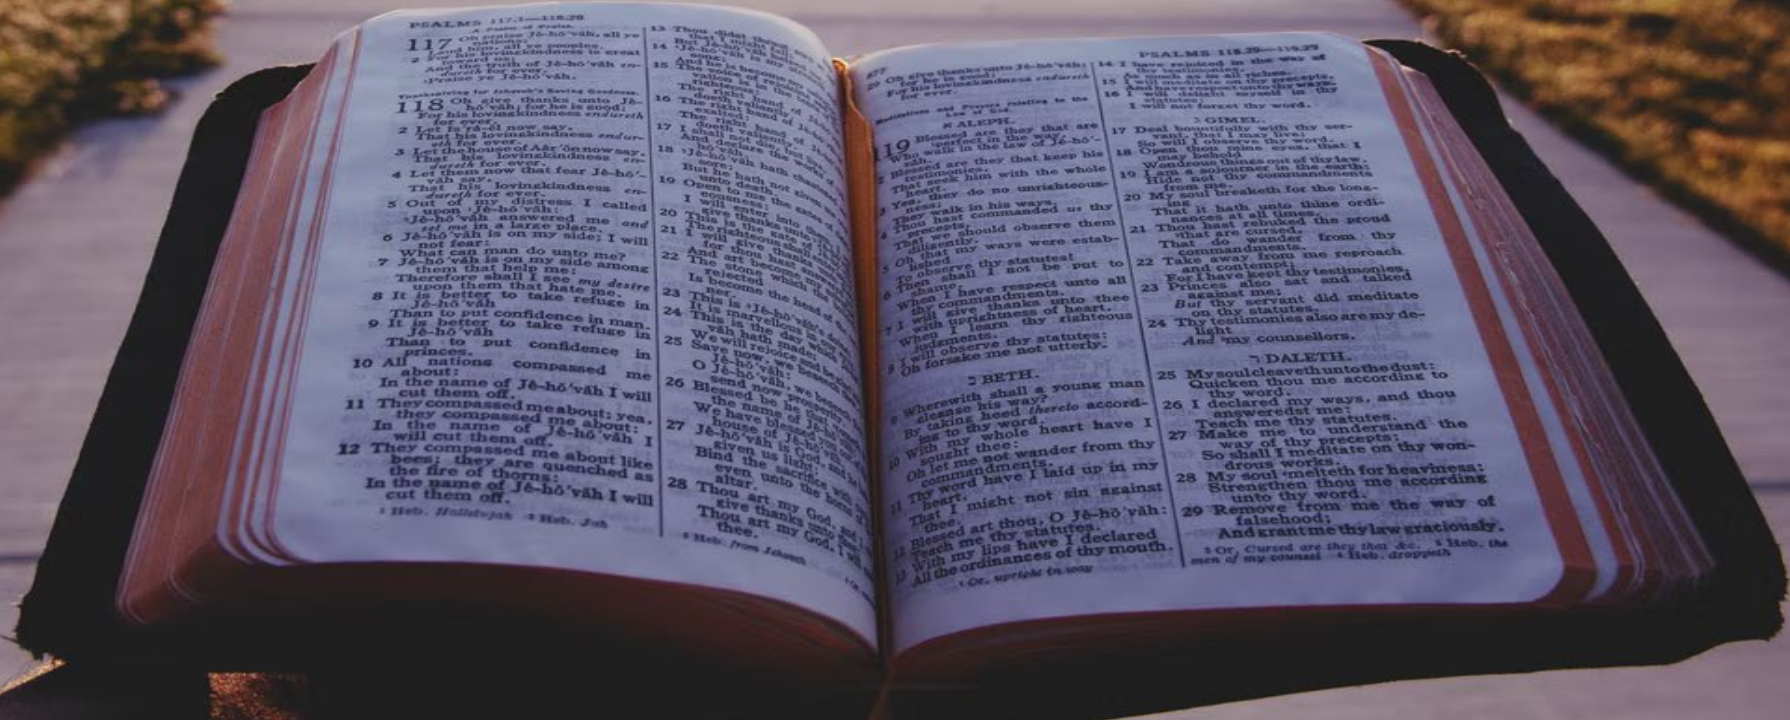 PSALMS 117.1—118.28
A Psalm of Praise.
117 Oh praise Jē-hō´vāh, all ye
nations;
Laud him, all ye peoples.
2 For his lovingkindness is great
toward us;
And the truth of Jē-hō´vāh en-
dureth for ever.
¹Praise ye Jē-hō´vāh.
Thanksgiving for Jehovah's Saving Goodness.
118 Oh give thanks unto Jē-
hō´vāh; for he is good;
For his lovingkindness endureth
for ever.
2 Let Iṣ´rā-ĕl now say,
That his lovingkindness endur-
eth for ever.
3 Let the house of Aâr´ȯn now say,
That his lovingkindness en-
dureth for ever.
4 Let them now that fear Jē-hō´-
vāh say,
That his lovingkindness en-
dureth for ever.
5 Out of my distress I called
upon ²Jē-hō´vāh:
²Jē-hō´vāh answered me and
set me in a large place.
6 Jē-hō´vāh is on my side; I will
not fear:
What can man do unto me?
7 Jē-hō´vāh is on my side among
them that help me:
Therefore shall I see my desire
upon them that hate me.
8 It is better to take refuge in
Jē-hō´vāh
Than to put confidence in man.
9 It is better to take refuge in
Jē-hō´vāh
Than to put confidence in
princes.
10 All nations compassed me
about:
In the name of Jē-hō´vāh I will
cut them off.
11 They compassed me about; yea,
they compassed me about:
In the name of Jē-hō´vāh I
will cut them off.
12 They compassed me about like
bees; they are quenched as
the fire of thorns:
In the name of Jē-hō´vāh I will
cut them off.
¹ Heb. Hallelujah ² Heb. Jah
13 Thou didst thrust
that I might
But Jē-hō´vāh
14 Jē-hō´vāh is my strength
And he is become
15 The voice
righteous:
The right hand of
doeth valiantly.
16 The right hand of
exalted:
The right hand of
doeth valiantly.
17 I shall not die, but
And declare the works
18 Jē-hō´vāh hath chastened
sore;
But he hath not given me
unto death.
19 Open to me the gates of
eousness:
I will enter into them,
give thanks
20 This is the gate of
The righteous shall
21 I will give thanks
for thou hast answered
And art become my
22 The stone which the
rejected
Is become the head of the
ner.
23 This is Jē-hō´vāh's
It is marvellous in
24 This is the day which
vāh hath made;
We will rejoice and be
25 Save now, we beseech
O Jē-hō´vāh:
O Jē-hō´vāh, we beseech
send now prosperity.
26 Blessed be he that
the name of Jē-hō´vāh:
We have blessed you
house of Jē-hō´vāh.
27 Jē-hō´vāh is God, and he
given us light:
Bind the sacrifice with
even unto the horns of
altar.
28 Thou art my God, and I
give thanks unto
Thou art my God, I will
thee.
Heb. from Jehovah
PSALMS 118.29—119.29
29 Oh give thanks unto Jē-hō´vāh;
for he is good;
For his lovingkindness endureth
for ever.
Meditations and Prayers relating to the
Law of God.
א ALEPH.
119 Blessed are they that are
¹perfect in the way,
Who walk in the law of Jē-hō´-
vāh.
2 Blessed are they that keep his
testimonies,
That seek him with the whole
heart.
3 Yea, they do no unrighteous-
ness;
They walk in his ways.
4 Thou hast commanded us thy
precepts,
That we should observe them
diligently.
5 Oh that my ways were estab-
lished
To observe thy statutes!
6 Then shall I not be put to
shame,
When I have respect unto all
thy commandments.
7 I will give thanks unto thee
with uprightness of heart,
When I learn thy righteous
judgments.
8 I will observe thy statutes:
Oh forsake me not utterly.
ב BETH.
9 Wherewith shall a young man
cleanse his way?
By taking heed thereto accord-
ing to thy word.
10 With my whole heart have I
sought thee:
Oh let me not wander from thy
commandments.
11 Thy word have I laid up in my
heart,
That I might not sin against
thee.
12 Blessed art thou, O Jē-hō´vāh:
Teach me thy statutes.
13 With my lips have I declared
All the ordinances of thy mouth.
¹ Or, upright in way
14 I have rejoiced in the way of
thy testimonies,
As much as in all riches.
15 I will meditate on thy precepts,
And have respect unto thy ways.
16 I will delight myself in thy
statutes:
I will not forget thy word.
ג GIMEL.
17 Deal bountifully with thy ser-
vant, that I may live;
So will I observe thy word.
18 Open thou mine eyes, that I
may behold
Wondrous things out of thy law.
19 I am a sojourner in the earth:
Hide not thy commandments
from me.
20 My soul breaketh for the long-
ing
That it hath unto thine ordi-
nances at all times.
21 Thou hast rebuked the proud
that are cursed,
That do wander from thy
commandments.
22 Take away from me reproach
and contempt;
For I have kept thy testimonies.
23 Princes also sat and talked
against me;
But thy servant did meditate
on thy statutes.
24 Thy testimonies also are my de-
light
And my counsellors.
ד DALETH.
25 My soul cleaveth unto the dust:
Quicken thou me according to
thy word.
26 I declared my ways, and thou
answeredst me:
Teach me thy statutes.
27 Make me to understand the
way of thy precepts:
So shall I meditate on thy won-
drous works.
28 My soul ⁴melteth for heaviness:
Strengthen thou me according
unto thy word.
29 Remove from me the way of
falsehood;
And grant me thy law graciously.
² Or, Cursed are they that &c. ³ Heb. the
men of my counsel ⁴ Heb. droppeth